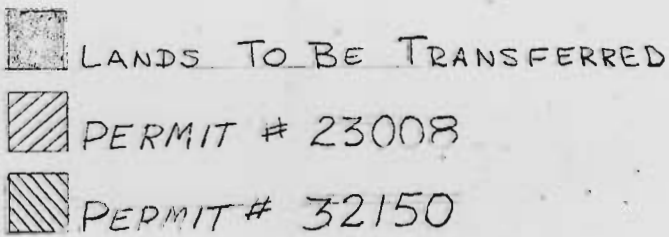 LANDS TO BE TRANSFERRED
PERMIT # 23008
PERMIT # 32150